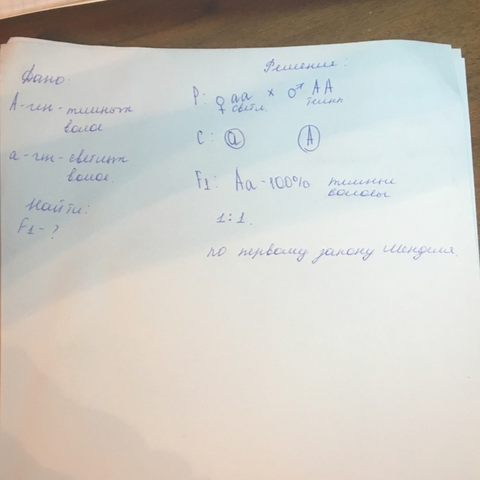 Дано:
А-ген-темных
волос
а-ген-светлых
волос.
Найти:
F1-?
Решение:
P: ♀ aa × ♂ AA
светл. темн
G: a A
F1: Aa-100% темные
волосы
1:1.
по первому закону Менделя.